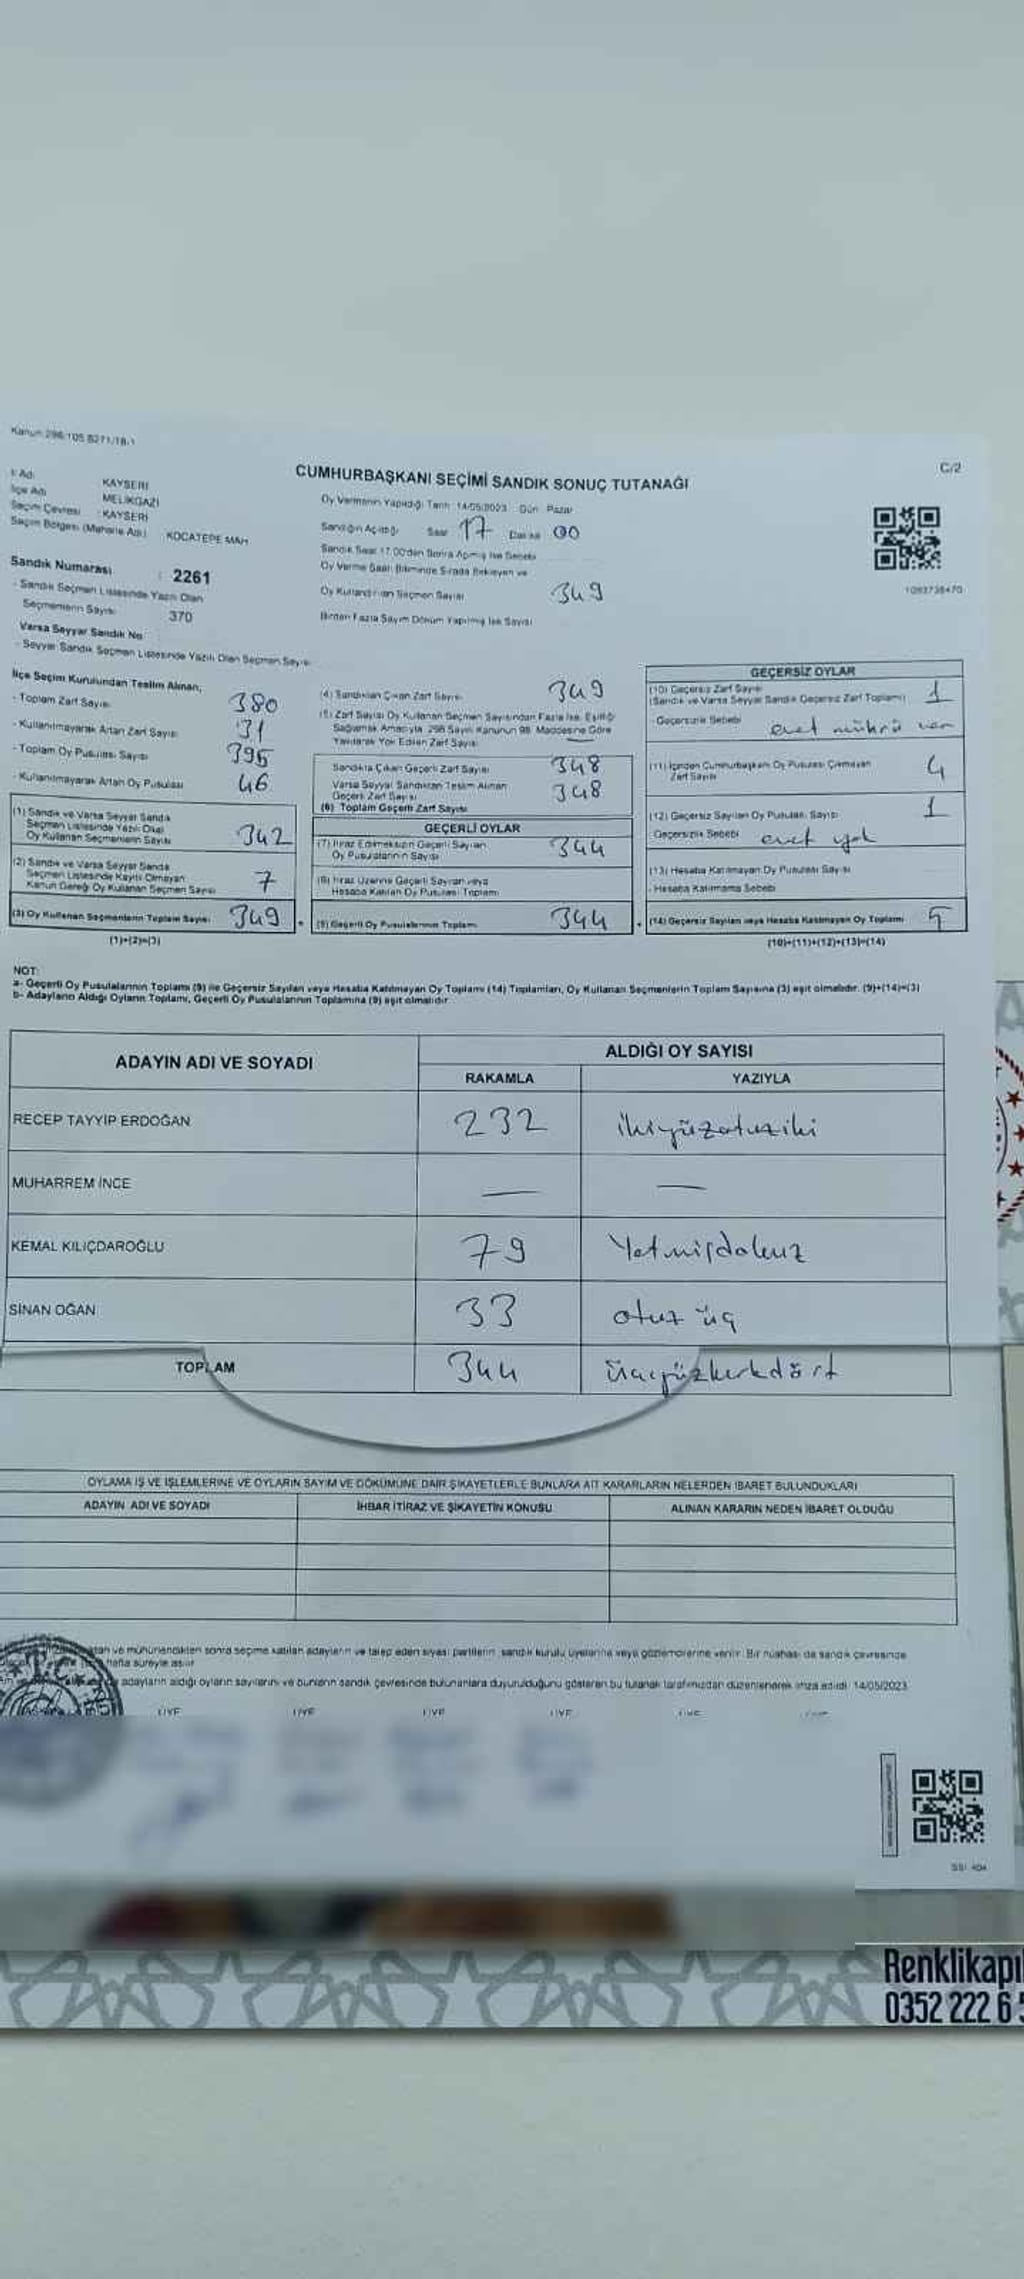 Kanun 298/105 8271/18-1
C/2
CUMHURBAŞKANI SEÇİMİ SANDIK SONUÇ TUTANAĞI
İl Adı KAYSERİ
İlçe Adı MELİKGAZİ
Seçim Çevresi : KAYSERİ
Seçim Bölgesi (Mahalle Adı) : KOCATEPE MAH.
Sandık Numarası : 2261
- Sandık Seçmen Listesinde Yazılı Olan
Seçmenlerin Sayısı 370
Varsa Seyyar Sandık No
- Seyyar Sandık Seçmen Listesinde Yazılı Olan Seçmen Sayısı
Oy Vermenin Yapıldığı Tarih: 14/05/2023 Gün: Pazar
Sandığın Açıldığı Saat 17 Dakika 00
Sandık Saat 17.00'den Sonra Açmış İse Sebebi
Oy Verme Saati Bitiminde Sırada Bekleyen ve
Oy Kullandırılan Seçmen Sayısı 349
Birden Fazla Sayım Döküm Yapılmış İse Sayısı
1093738470
İlçe Seçim Kurulundan Teslim Alınan;
- Toplam Zarf Sayısı 380
- Kullanılmayarak Artan Zarf Sayısı 31
- Toplam Oy Pusulası Sayısı 395
- Kullanılmayarak Artan Oy Pusulası 46
(1) Sandık ve Varsa Seyyar Sandık
Seçmen Listesinde Yazılı Olan
Oy Kullanan Seçmenlerin Sayısı 342
(2) Sandık ve Varsa Seyyar Sandık
Seçmen Listesinde Kayıtlı Olmayan
Kanun Gereği Oy Kullanan Seçmen Sayısı 7
(3) Oy Kullanan Seçmenlerin Toplam Sayısı 349
(1)+(2)=(3)
(4) Sandıktan Çıkan Zarf Sayısı 349
(5) Zarf Sayısı Oy Kullanan Seçmen Sayısından Fazla İse, Eşitliği
Sağlamak Amacıyla 298 Sayılı Kanunun 98. Maddesine Göre
Yakılarak Yok Edilen Zarf Sayısı —
Sandıkta Çıkan Geçerli Zarf Sayısı 348
Varsa Seyyar Sandıktan Teslim Alınan
Geçerli Zarf Sayısı 348
(6) Toplam Geçerli Zarf Sayısı
GEÇERLİ OYLAR
(7) İtiraz Edilmeksizin Geçerli Sayılan
Oy Pusulalarının Sayısı 344
(8) İtiraz Üzerine Geçerli Sayılan veya
Hesaba Katılan Oy Pusulası Toplamı
(9) Geçerli Oy Pusulalarının Toplamı 344
GEÇERSİZ OYLAR
(10) Geçersiz Zarf Sayısı
(Sandık ve Varsa Seyyar Sandık Geçersiz Zarf Toplamı) 1
- Geçersizlik Sebebi evet mührü var
(11) İçinden Cumhurbaşkanı Oy Pusulası Çıkmayan
Zarf Sayısı 4
(12) Geçersiz Sayılan Oy Pusulası Sayısı 1
Geçersizlik Sebebi evet yok
(13) Hesaba Katılmayan Oy Pusulası Sayısı
- Hesaba Katılmama Sebebi
(14) Geçersiz Sayılan veya Hesaba Katılmayan Oy Toplamı 5
(10)+(11)+(12)+(13)=(14)
NOT:
a- Geçerli Oy Pusulalarının Toplamı (9) ile Geçersiz Sayılan veya Hesaba Katılmayan Oy Toplamı (14) Toplamları, Oy Kullanan Seçmenlerin Toplam Sayısına (3) eşit olmalıdır. (9)+(14)=(3)
b- Adayların Aldığı Oyların Toplamı, Geçerli Oy Pusulalarının Toplamına (9) eşit olmalıdır.
ADAYIN ADI VE SOYADI ALDIĞI OY SAYISI
RAKAMLA YAZIYLA
RECEP TAYYİP ERDOĞAN 232 ikiyüzotuziki
MUHARREM İNCE — —
KEMAL KILIÇDAROĞLU 79 Yetmişdokuz
SİNAN OĞAN 33 otuz üç
TOPLAM 344 üçyüzkırkdört
OYLAMA İŞ VE İŞLEMLERİNE VE OYLARIN SAYIM VE DÖKÜMÜNE DAİR ŞİKAYETLERLE BUNLARA AİT KARARLARIN NELERDEN İBARET BULUNDUKLARI
ADAYIN ADI VE SOYADI İHBAR İTİRAZ VE ŞİKAYETİN KONUSU ALINAN KARARIN NEDEN İBARET OLDUĞU
ve mühürlendikten sonra seçime katılan adayların ve talep eden siyasi partilerin, sandık kurulu üyelerine veya gözlemcilerine verilir. Bir nüshası da sandık çevresinde
hafta süreyle asılır.
adayların aldığı oyların sayılarını ve bunların sandık çevresinde bulunanlara duyurulduğunu gösteren bu tutanak tarafımızdan düzenlenerek imza edildi. 14/05/2023
ÜYE ÜYE ÜYE ÜYE ÜYE
T.C.
Renklikapı
0352 222 6